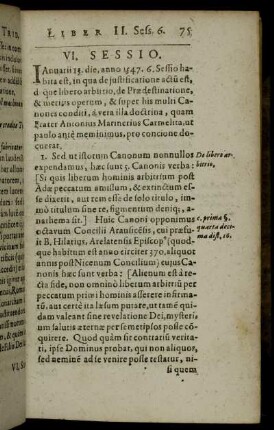 LIBER II. Sess. 6. 75
VI. SESSIO.
IAnuarii 13. die, anno 1547. 6. Sessio ha-
bita est, in qua de justificatione actũ est,
deque libero arbitrio, de Prædestinatione,
& meritis operum, & super his multi Ca-
nones conditi, à vera illa doctrina, quam
frater Antonius Marinerius Carmelita, ut
paulo antè meminimus, pro concione do-
cuerat.
1. Sed ut istorum Canonum nonnullos
expendamus, hæc sunt 5. Canonis verba:
[Si quis liberum hominis arbitrium post
Adæ peccatum amissum, & extinctum es-
se dixerit, aut rem esse de solo titulo, im-
mò titulum sine re, figmentum deniq;, a-
nathema sit.] Huic Canoni opponimus
octavum Concilii Arausicẽsis, cui præsu-
it B. Hilarius, Arelatensis Episcopꝰ (quod-
que habitum est anno circiter 370, aliquot
annis post Nicenum Concilium) cujus Ca-
nonis hæc sunt verba: [Alienum est à re-
cta fide, non omnino liberum arbitriũ per
peccatum primi hominis asserere infirma-
tũ, aut certè ita læsum putare, ut tamẽ qui-
dam valeant sine revelatione Dei, mysteri-
um salutis æternæ per semetipsos posse cõ-
quirere. Quod quàm sit contrariũ verita-
ti, ipse Dominus probat, qui non aliquos,
sed neminẽ ad se venire posse testatur, ni-
si quem
De libero ar-
bitrio.
c. prima §.
quarta deci-
ma dist. 18.